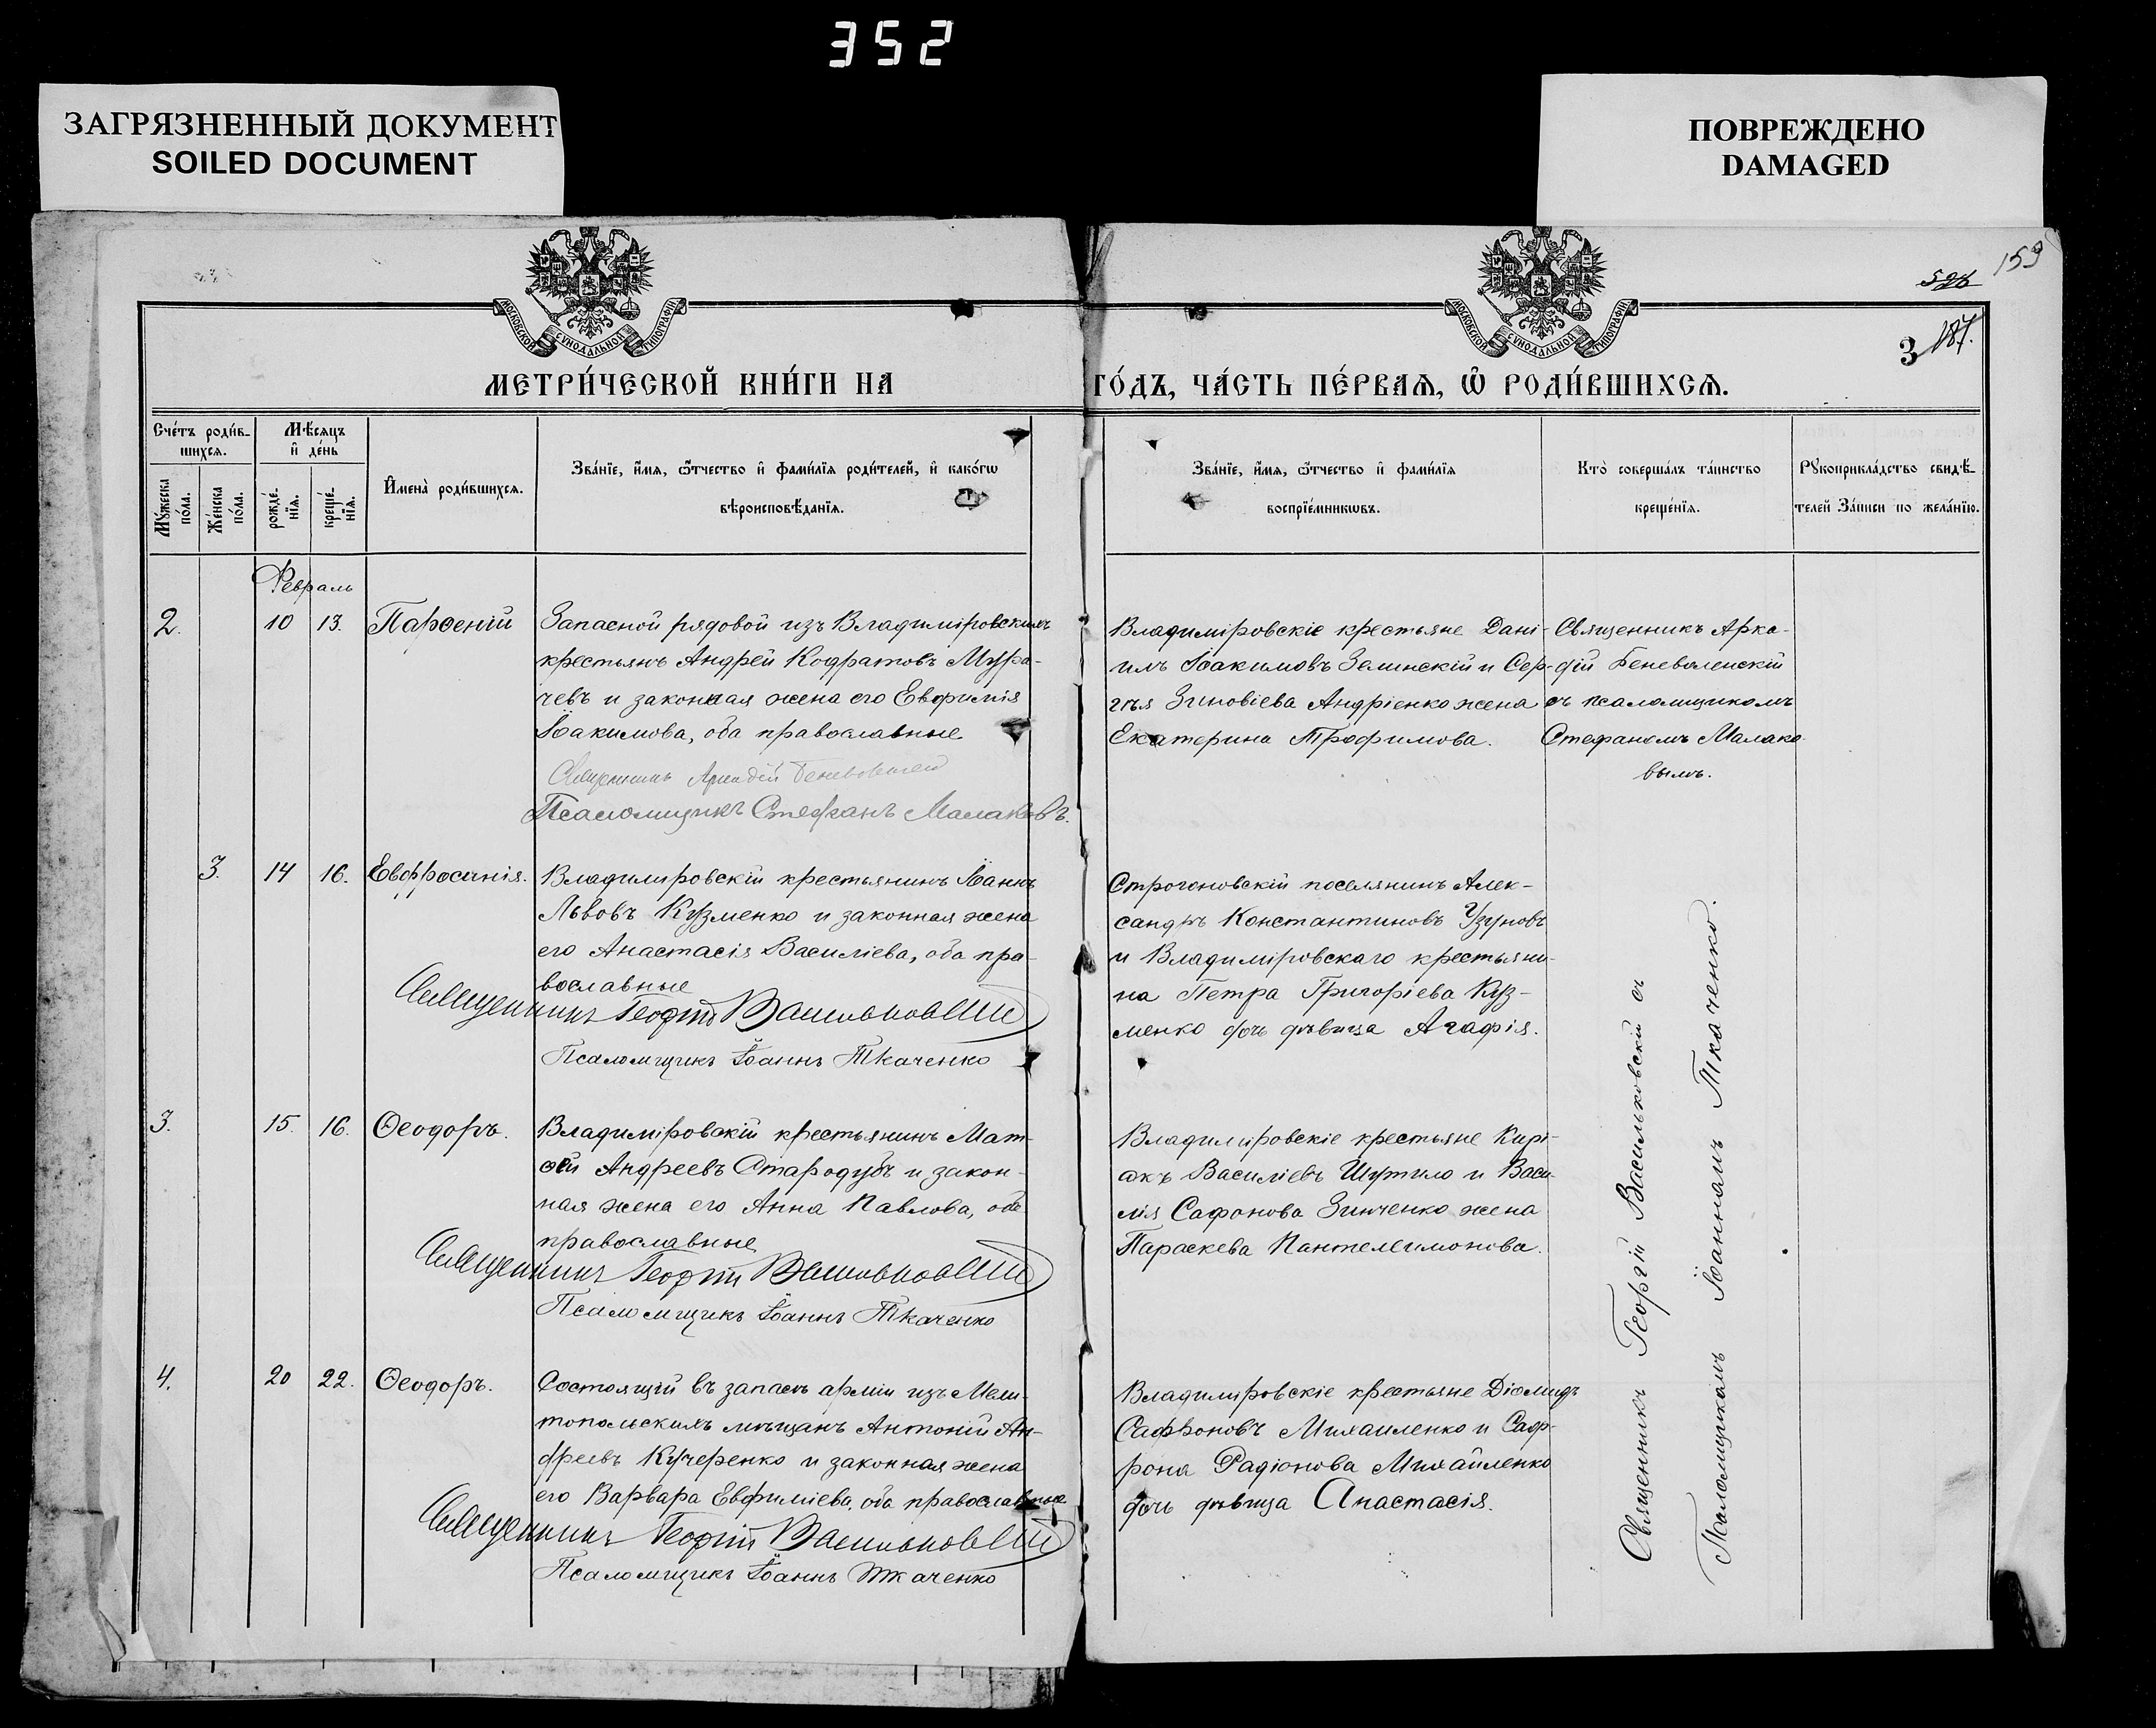 352
ЗАГРЯЗНЕННЫЙ ДОКУМЕНТ
SOILED DOCUMENT
ПОВРЕЖДЕНО
DAMAGED
159
3
187.
МОСКОВСКОЙ СѴНОДАЛЬНОЙ ТИПОГРАФІИ
МОСКОВСКОЙ СѴНОДАЛЬНОЙ ТИПОГРАФІИ
МЕТРИ́ЧЕСКОЙ КНИ́ГИ НА ГО́ДЪ, ЧА́СТЬ ПЕ́РВАѦ, Ѽ РОДИ́ВШИХСѦ.
Сче́тъ роди́в-
шихсѧ.
Мꙋ́жеска
по́ла.
Же́нска
по́ла.
Мѣ́сѧцъ
и҆ де́нь
рожде́-
нїѧ.
креще́-
нїѧ.
И҆мена̀ роди́вшихсѧ.
Зва́нїе, и҆́мѧ, ѻ҆́тчество и҆ фами́лїѧ роди́телей, и҆ како́гѡ
вѣроисповѣ́данїѧ.
Зва́нїе, и҆́мѧ, ѻ҆́тчество и҆ фами́лїѧ
воспрїе́мникѡвъ.
Кто̀ соверша́лъ та́инство
креще́нїѧ.
Рꙋкоприкла́дство свидѣ́-
телей За́писи по жела́нїю.
Февраль
2.
10
13.
Парѳеній
Запасной рядовой изъ Владиміровскихъ
крестьянъ Андрей Кодратовъ Мура-
чевъ и законная жена его Евфимія
Іоакимова, оба православные
Священникъ Аркадій Беневоленскій
Псаломщикъ Стефанъ Малаковъ.
Владиміровскіе крестьяне Дані-
илъ Іоакимовъ Залинскій и Сер-
гѣя Зиновіева Андріенко жена
Екатерина Трофимова.
Священникъ Арка-
дій Беневоленскій
съ псаломщикомъ
Стефаномъ Малако-
вымъ.
3.
14
16.
Евфросинія.
Владиміровскій крестьянинъ Іоаннъ
Львовъ Кузменко и законная жена
его Анастасія Василіева, оба пра-
вославные
Священникъ Георгій Васильковскій
Псаломщикъ Іоаннъ Ткаченко
Строгоновскій поселянинъ Алек-
сандръ Константиновъ Узуновъ
и Владиміровскаго крестьяни-
на Петра Григоріева Куз-
менко дочь дѣвица Агафія.
3.
15.
16.
Ѳеодоръ.
Владиміровскій крестьянинъ Мат-
ѳей Андреевъ Стародубъ и закон-
ная жена его Анна Павлова, оба
православные
Священникъ Георгій Васильковскій
Псаломщикъ Іоаннъ Ткаченко
Владиміровскіе крестьяне Кирі-
акъ Василіевъ Шутило и Васи-
лія Сафонова Зинченко жена
Параскева Пантелеимонова.
4.
20
22.
Ѳеодоръ.
Состоящій въ запасѣ арміи изъ Мели-
топольскихъ мѣщанъ Антоній Ан-
дреевъ Кучеренко и законная жена
его Варвара Евфиміева, оба православные
Священникъ Георгій Васильковскій
Псаломщикъ Іоаннъ Ткаченко
Владиміровскіе крестьяне Діомидъ
Сафроновъ Михаиленко и Саф-
рона Радіонова Михайленко
дочь дѣвица Анастасія.
Священникъ Георгій Васильковскій съ
Псаломщикомъ Іоанномъ Ткаченко.